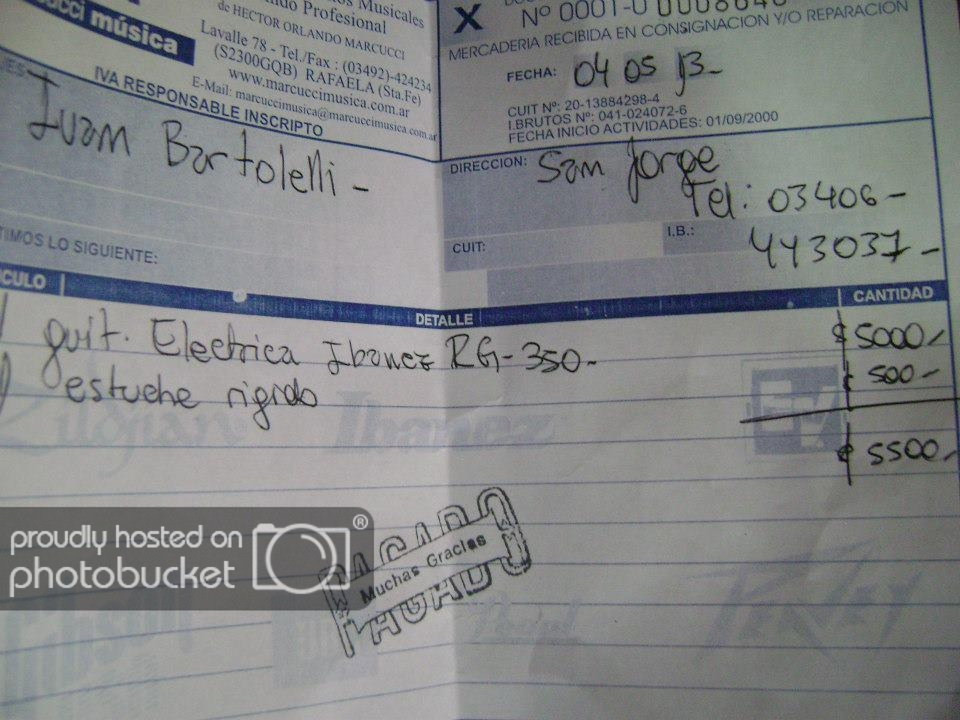 Musicales
Profesional
de HECTOR ORLANDO MARCUCCI
música
Lavalle 78 - Tel./Fax : (03492)-424234
(S2300GQB) RAFAELA (Sta.Fe)
www.marcuccimusica.com.ar
E-Mail: marcuccimusica@marcuccimusica.com.ar
IVA RESPONSABLE INSCRIPTO
X
Nº 0001-0
MERCADERIA RECIBIDA EN CONSIGNACION Y/O REPARACION
FECHA: 04 05 13-
CUIT Nº: 20-13884298-4
I.BRUTOS Nº: 041-024072-6
FECHA INICIO ACTIVIDADES: 01/09/2000
Juan Bartolelli -
DIRECCION: San Jorge
Tel: 03406-
CUIT:
I.B.: 443037-
TIMOS LO SIGUIENTE:
CULO
DETALLE
CANTIDAD
guit. Electrica Ibanez RG-350- $ 5000,-
estuche rigido $ 500,-
$ 5500,-
Zildjian
Ibanez
proudly hosted on
photobucket®
PAGADO
Muchas Gracias
PAGADO
Gibson
Peavey